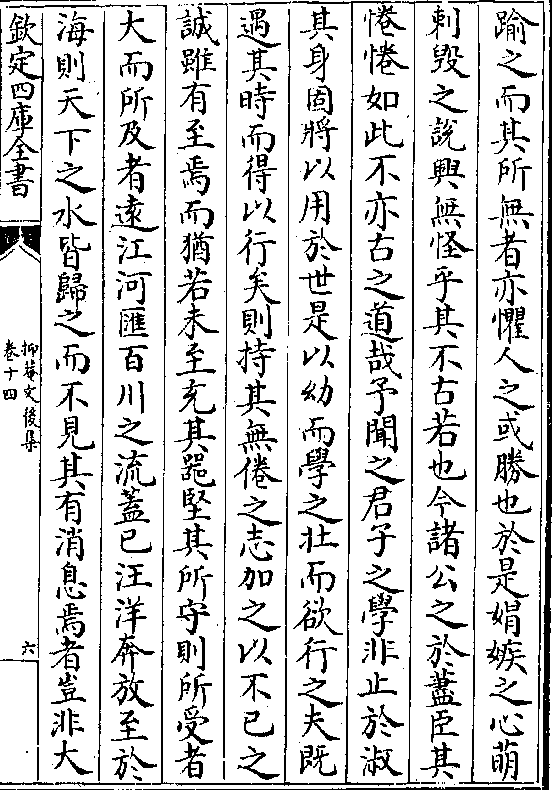 踰之而其所無者亦懼人之或勝也於是娟嫉之心萌
刺毀之說興無怪乎其不古若也今諸公之於藎臣其
惓惓如此不亦古之道哉予聞之君子之學非止於淑
其身固將以用於世是以幼而學之壯而欲行之夫既
遇其時而得以行矣則持其無倦之志加之以不已之
誠雖有至焉而猶若未至充其器堅其所守則所受者
大而所及者遠江河匯百川之流蓋已汪洋奔放至於
海則天下之水皆歸之而不見其有消息焉者豈非大
欽定四庫全書
抑菴文後集
卷十四
六